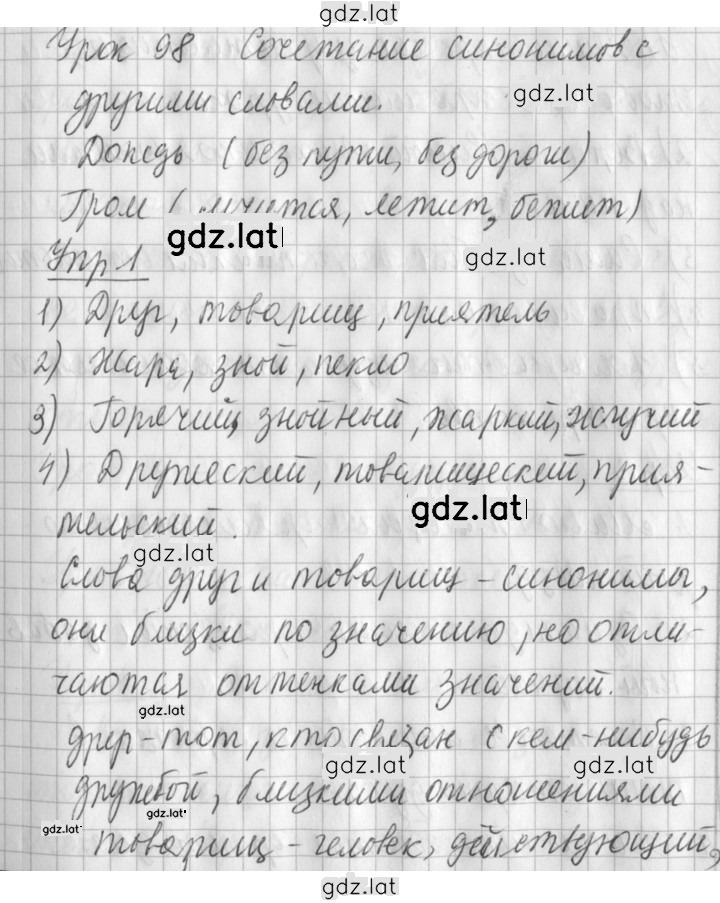 gdz.lat
Урок 98 Сочетание синонимов с
gdz.lat
другими словами.
Дождь (без пути, без дорог)
Гром ( мчится, летит, бежит)
gdz.lat
gdz.lat
Упр 1
1) Друг, товарищ, приятель
2) Жара, зной, пекло
3) Горячий, знойный, жаркий, жгучий
4) Дружеский, товарищеский, прия-
gdz.lat
тельский.
gdz.lat
Слова друг и товарищ - синонимы,
они близки по значению, но отли-
чаются оттенками значений.
gdz.lat
друг - тот, кто связан с кем-нибудь
gdz.lat
gdz.lat
дружбой, близкими отношениями
gdz.lat
gdz.lat
товарищ - человек, действующий,
gdz.lat